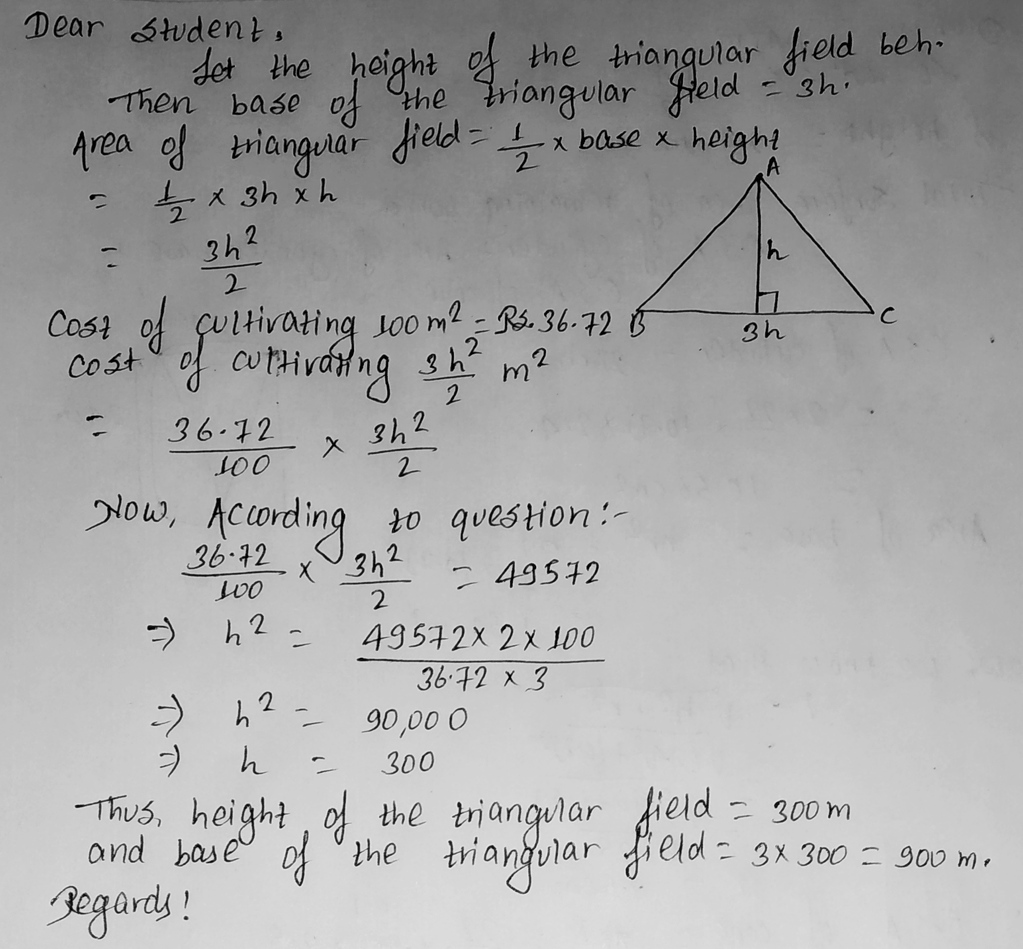 Dear Student,
Let the height of the triangular field beh.
Then base of the triangular field = 3h.
Area of triangular field = 1/2 x base x height
= 1/2 x 3h x h
= 3h²/2
A
h
B
3h
C
Cost of cultivating 100m² = Rs. 36.72
Cost of cultivating 3h²/2 m²
= 36.72/100 x 3h²/2
Now, According to question:-
36.72/100 x 3h²/2 = 49572
=> h² = 49572 x 2 x 100 / 36.72 x 3
=> h² = 90,000
=> h = 300
Thus, height of the triangular field = 300m
and base of the triangular field = 3x300 = 900 m.
Regards!